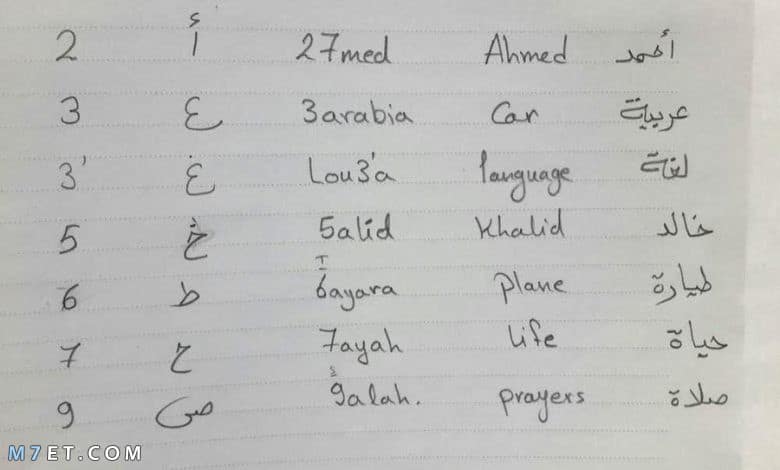 2 أ 27med Ahmed أحمد
3 ع 3arabia Car عربية
3' غ Lou3'a language لغة
5 خ 5alid Khalid خالد
T
6 ط 6ayara plane طيارة
7 ح 7ayah life حياة
s
9 ص 9alah. prayers صلاة
M7ET.COM